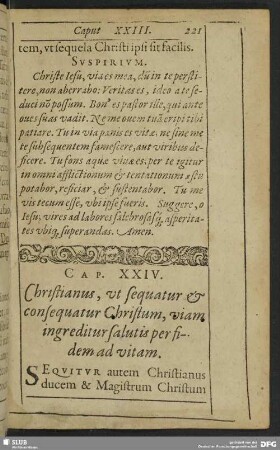 Caput XXIII. 221
tem, vt sequela Christi ipsi sit facilis.
SVSPIRIVM.
Christe Iesu, via es mea, dū in te persti-
tero, non aberrabo: Veritas es, ideo a te se-
duci nō possum. Bon⁹ es pastor ille, qui ante
oues suas vadit. Ne me ouem tuā eripi tibi
patiare. Tu in via panis es vitæ: ne sine me
te subsequentem famescere, aut viribus de-
ficere. Tu fons aquæ vivæ es, per te igitur
in omni afflictionum & tentationum æstu
potabor, reficiar, & sustentabor. Tu me
vis tecum esse, vbi ipse fueris. Suggere, o
Iesu, vires ad labores salebrosasq́, asperita-
tes vbiq́, superandas. Amen.
CAP. XXIV.
Christianus, vt sequatur &
consequatur Christum, viam
ingreditur salutis per fi-
dem ad vitam.
SEQVITVR autem Christianus
ducem & Magistrum Christum
SLUB
DFG